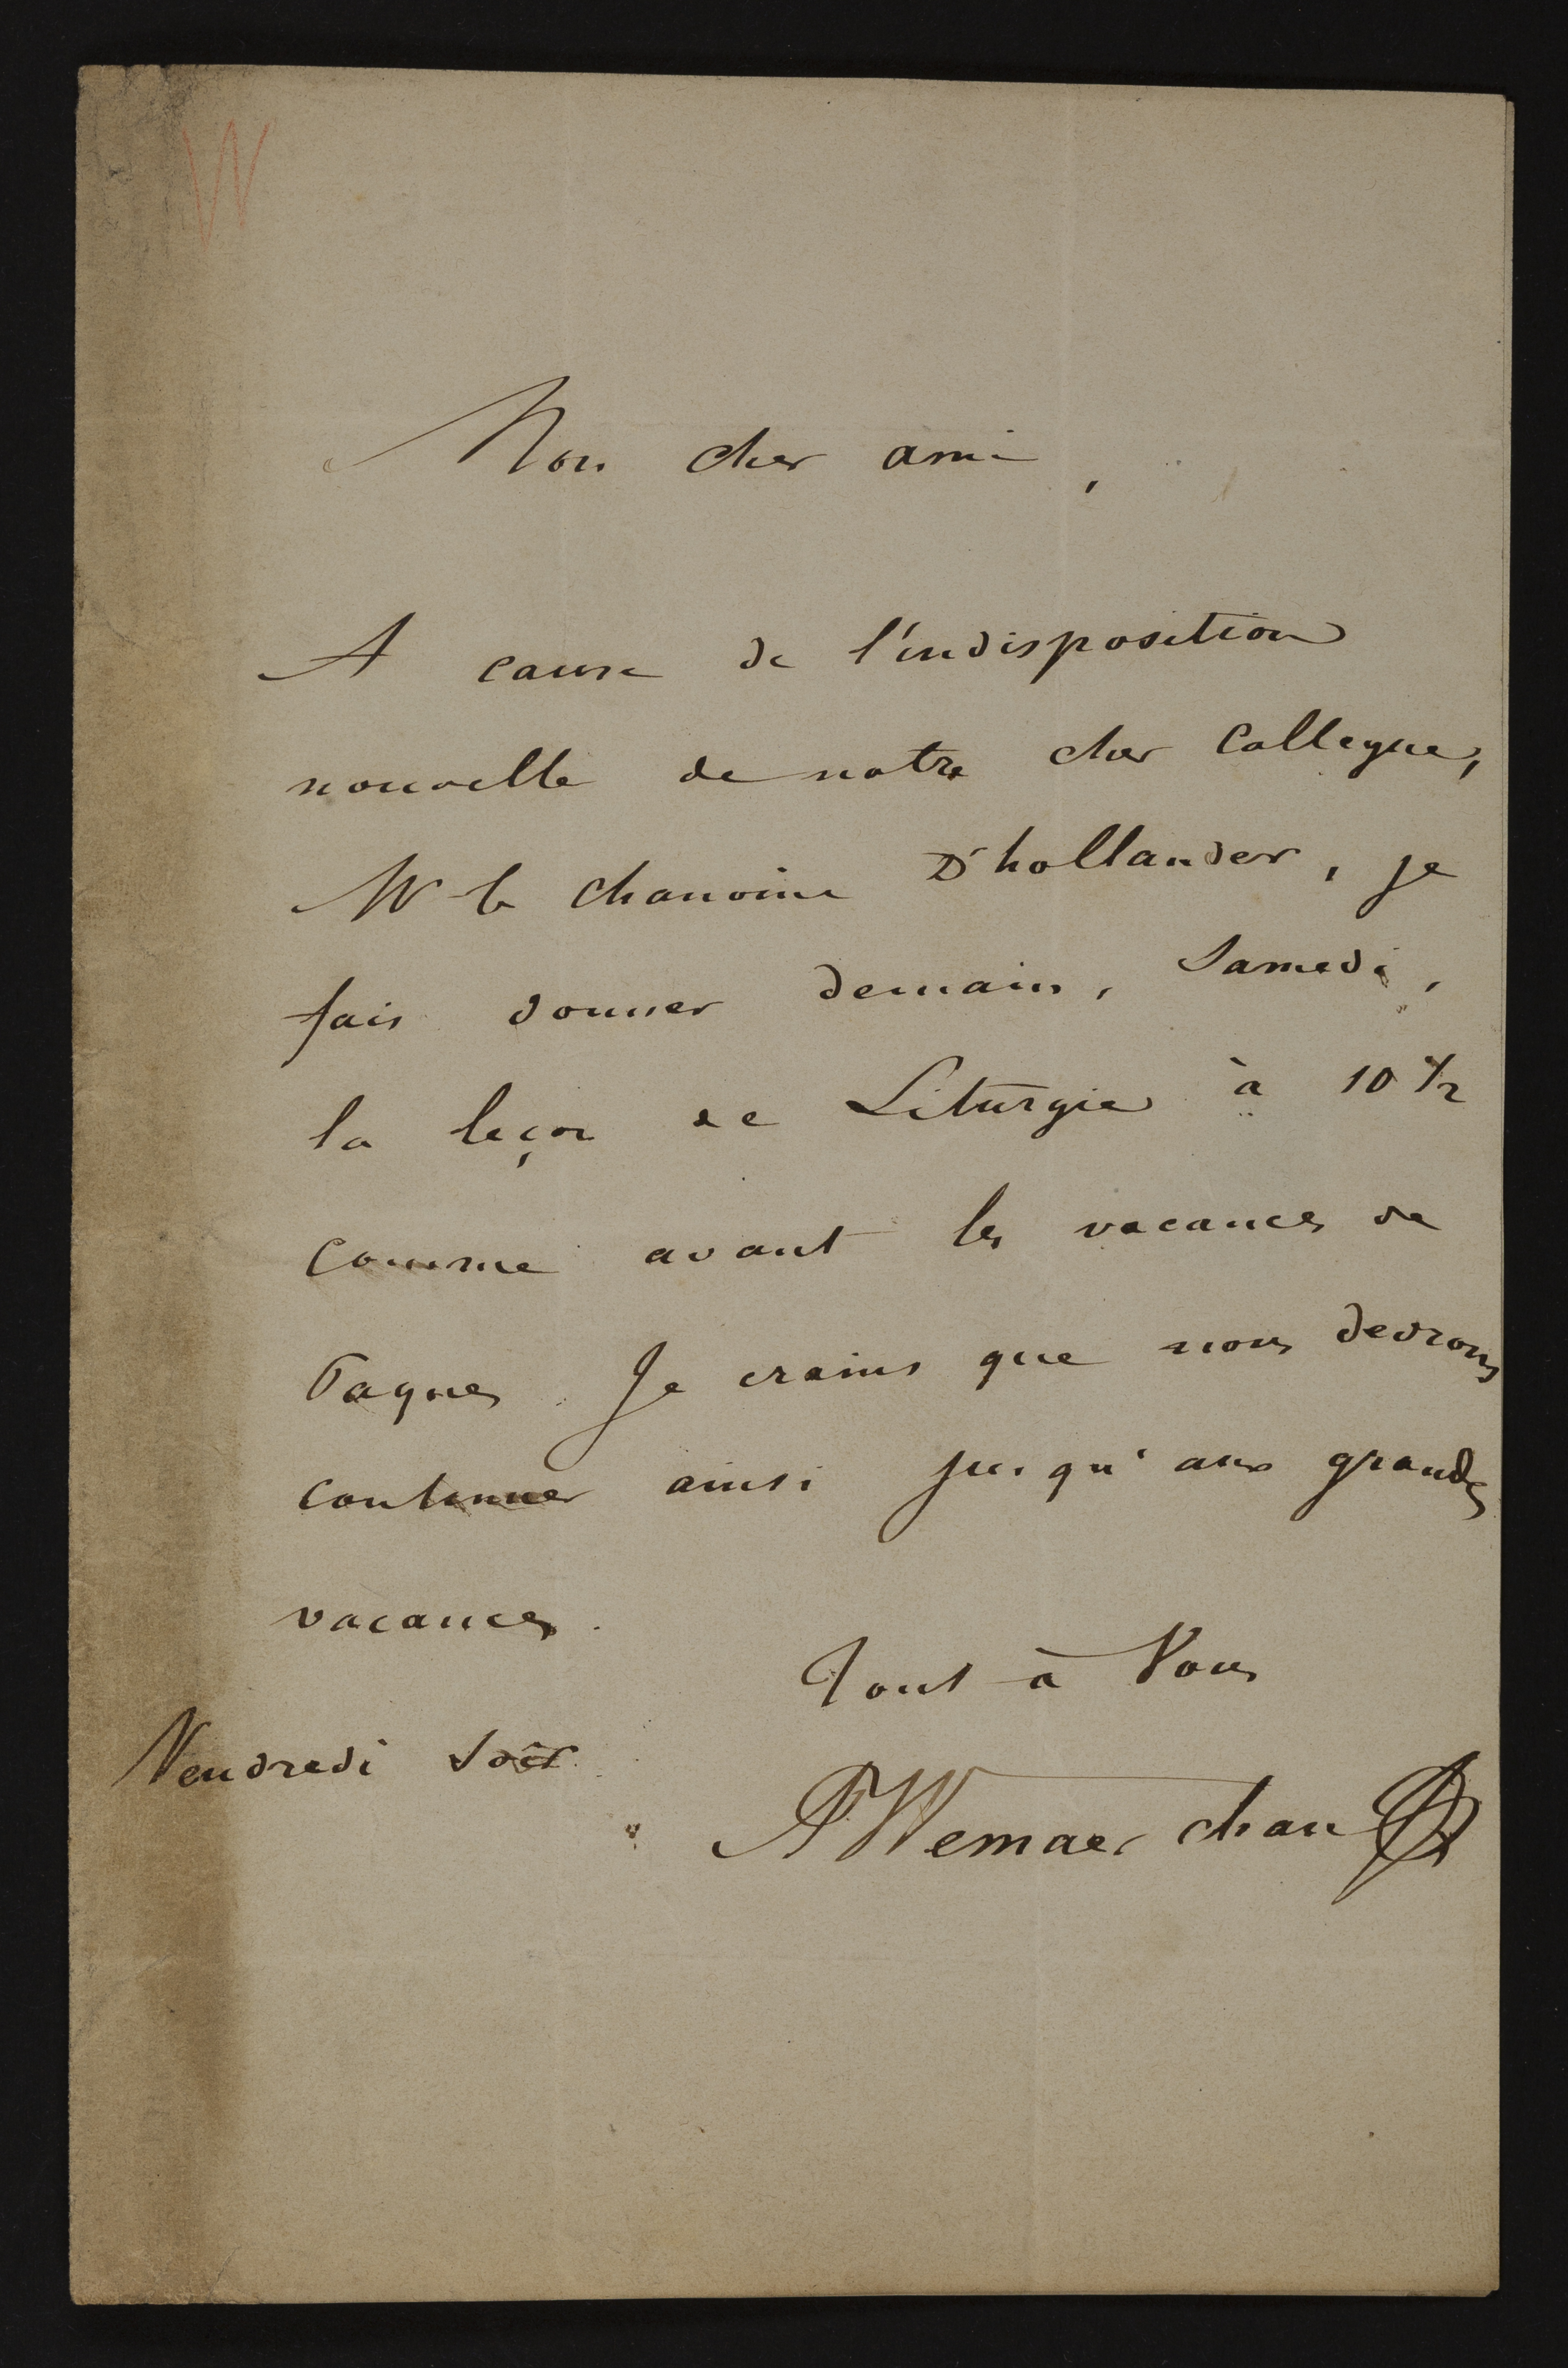 W
Mon cher ami,
A cause de l'indisposition
nouvelle de notre cher Collegue,
Mr le chanoine D'hollander, je
fais donner demain, Samedi,
la leçon de Liturgie à 10 1/2
comme avant les vacances de
Paques. Je crains que nous devrons
continuer ainsi jusqu'aux grandes
vacances.
Tout à Vous
Vendredi soir.
A Wemaer chan